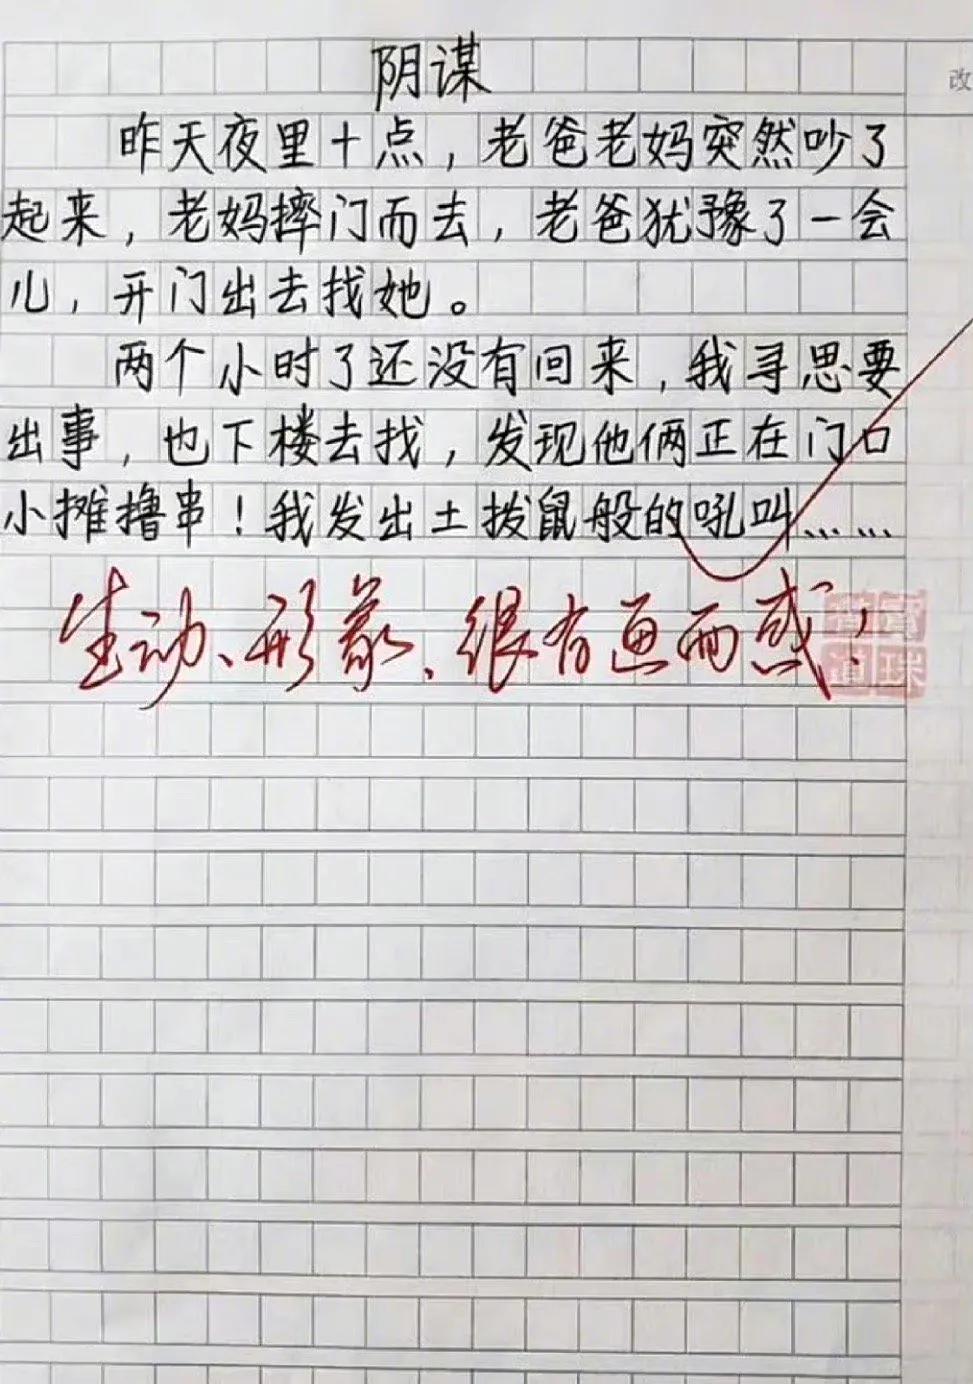 改
阴谋
昨天夜里十点，老爸老妈突然吵了
起来，老妈摔门而去，老爸犹豫了一会
儿，开门出去找她。
两个小时了还没有回来，我寻思要
出事，也下楼去找，发现他俩正在门口
小摊撸串！我发出土拨鼠般的吼叫……
生动、形象、很有画面感！